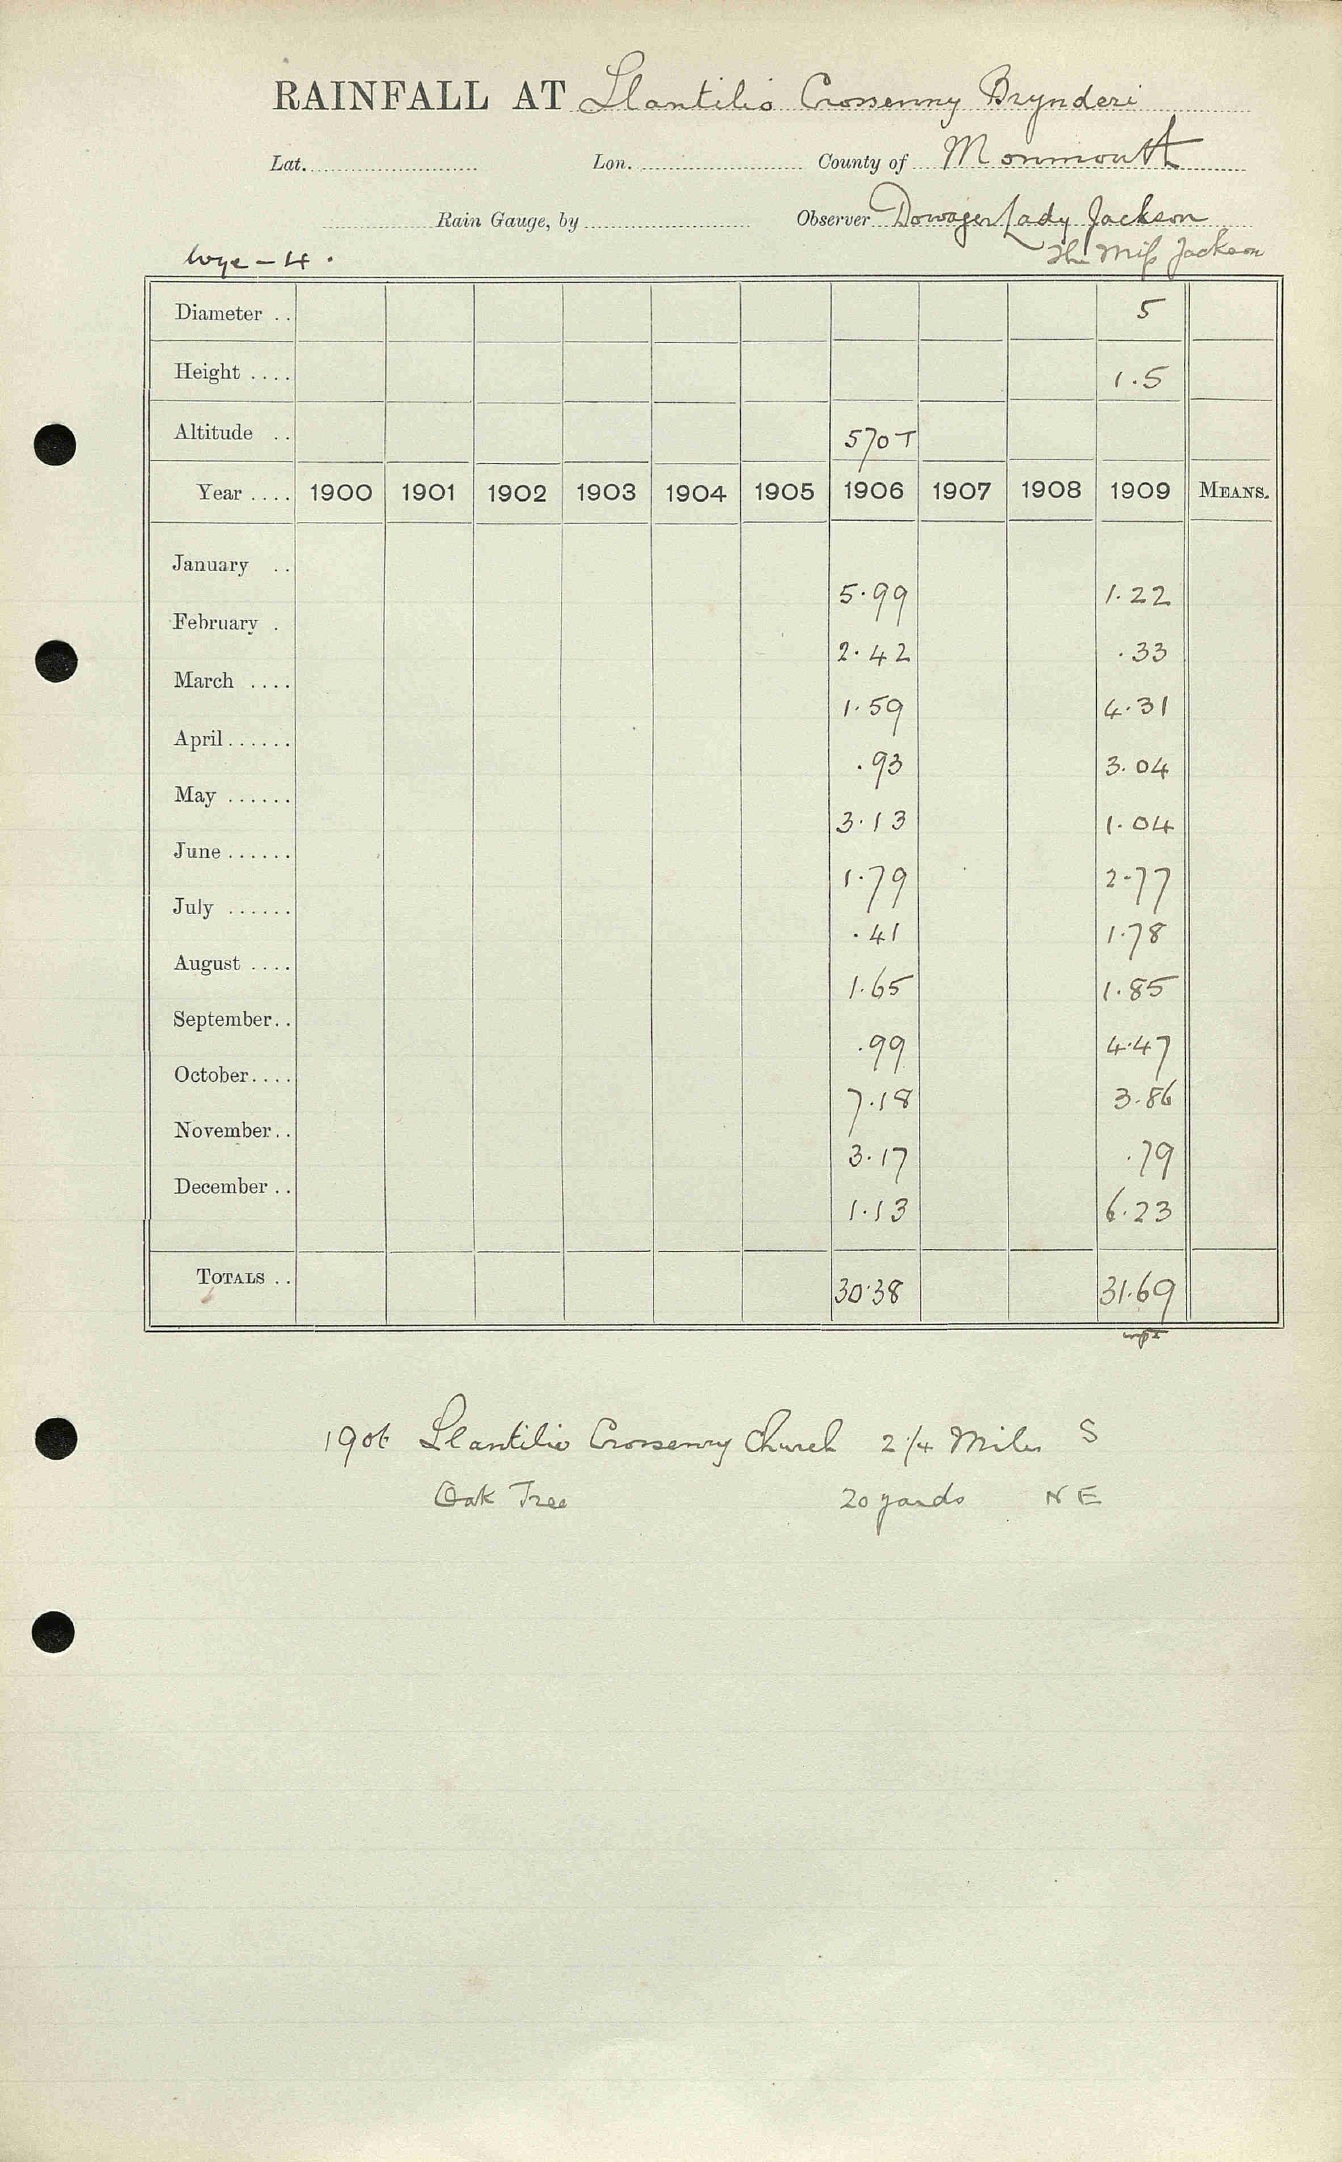 RAINFALL AT Llantilio Crossenny Brynderi
Lat. Lon. County of Monmouth
Rain Gauge, by Observer Dowager Lady Jackson
Wye - 4. The Miss Jackson
Diameter .. 5
Height .... 1.5
Altitude .. 570 T
Year .... 1900 1901 1902 1903 1904 1905 1906 1907 1908 1909 MEANS.
January .. 5.99 1.22
February . 2.42 .33
March .... 1.59 4.31
April...... .93 3.04
May ...... 3.13 1.04
June ...... 1.79 2.77
July ...... .41 1.78
August .... 1.65 1.85
September.. .99 4.47
October.... 7.18 3.86
November.. 3.17 .79
December .. 1.13 6.23
TOTALS .. 30.38 31.69
1906 Llantilio Crossenny Church 2 1/4 Miles S
Oak Tree 20 yards N E